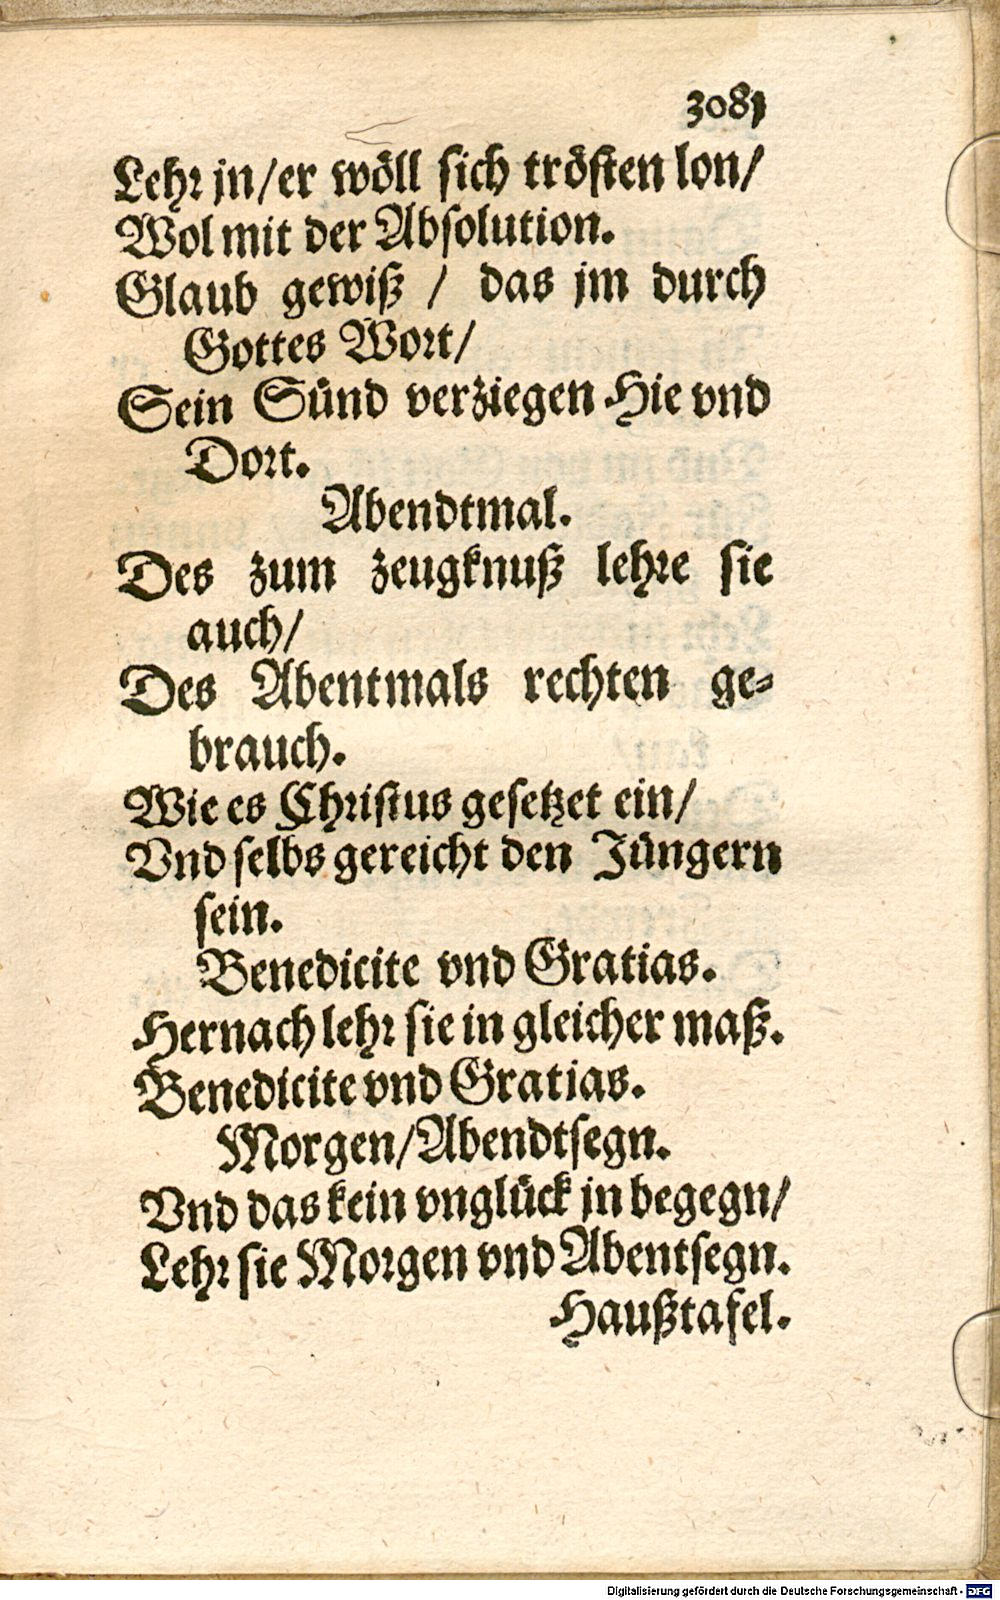 3081
Lehr jn/er wöll sich trösten lon/
Wol mit der Absolution.
Glaub gewiß / das jm durch
Gottes Wort/
Sein Sünd verziegen Hie vnd
Dort.
Abendtmal.
Des zum zeugknuß lehre sie
auch/
Des Abentmals rechten ge-
brauch.
Wie es Christus gesetzet ein/
Vnd selbs gereicht den Jüngern
sein.
Benedicite vnd Gratias.
Hernach lehr sie in gleicher maß.
Benedicite vnd Gratias.
Morgen/Abendtsegn.
Vnd das kein vnglück jn begegn/
Lehr sie Morgen vnd Abentsegn.
Haußtafel.
Digitalisierung gefördert durch die Deutsche Forschungsgemeinschaft - DFG